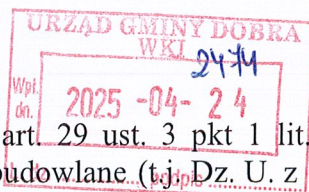 URZĄD GMINY DOBRA
WKI
2474
Wpł.
dn.
2025 -04- 24
art. 29 ust. 3 pkt 1 lit.
budowlane (t.j. Dz. U. z
podpis